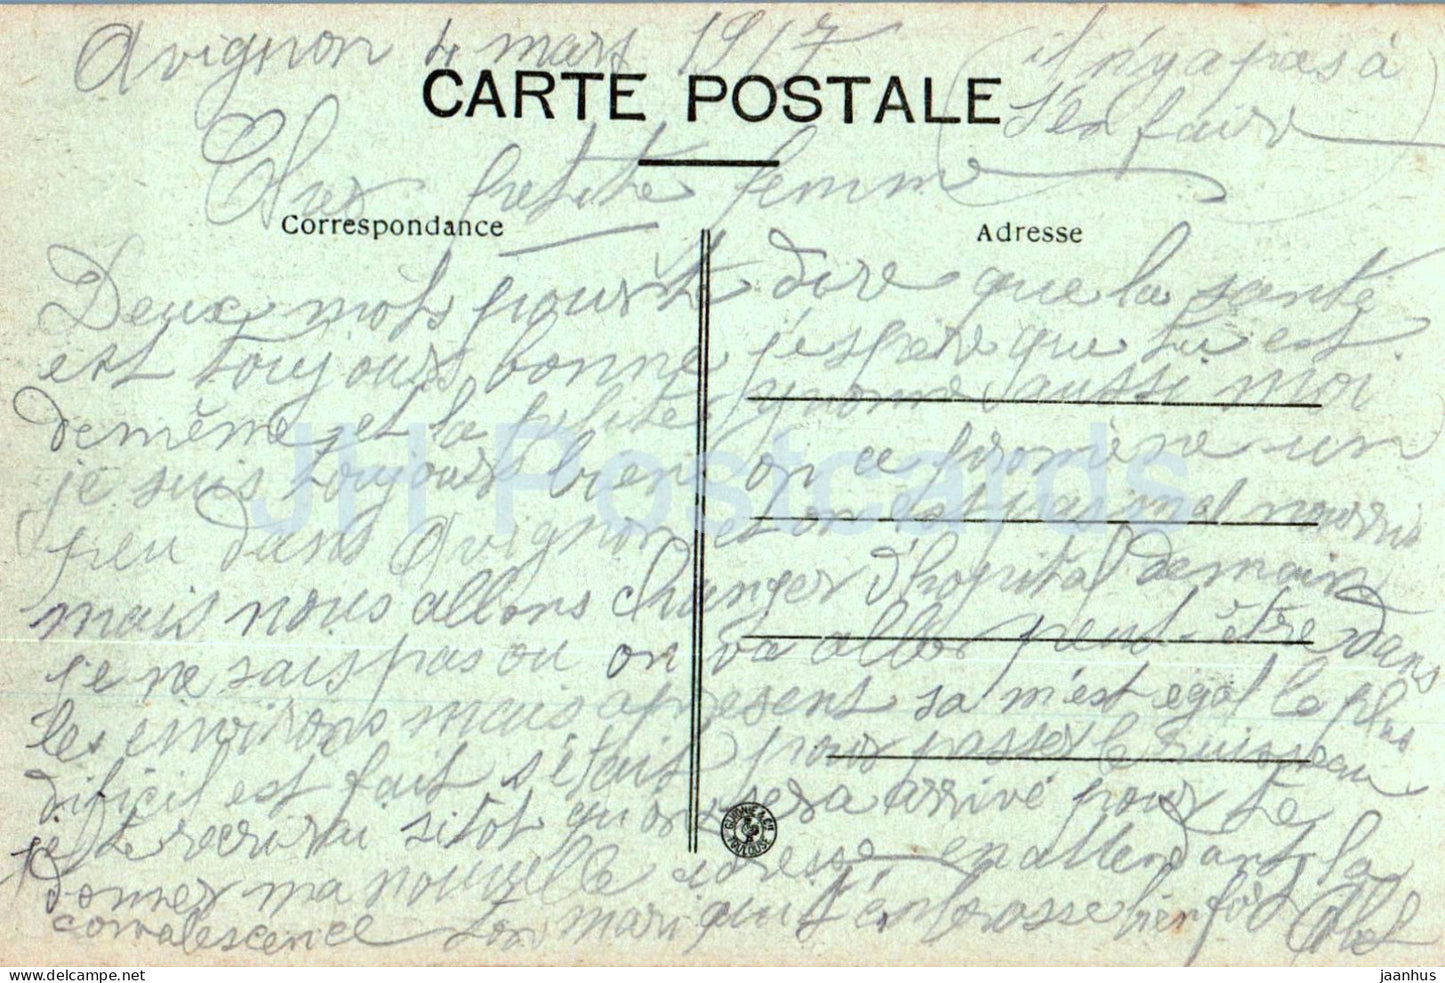 Avignon 4 mars 1917
(il n'y a pas à
s'en faire
CARTE POSTALE
Cher petite femme
Correspondance
Adresse
Deux mots pour te dire que la santé
est toujours bonne j'espère que tu est
de même et la petite quome aussi moi
je suis toujours bien on ce promène un
peu dans Avignon et on est pas mal nourris
mais nous allons changer d'hopital demain
je ne sais pas ou on va aller peut-être dans
les environs mais apresent sa m'est egal le plus
dificil est fait s'était pour passer le ruisseau
je te recrirai sitot qu'on sera arrivé pour te
donner ma nouvelle adresse en attendant la
convalescence ton mari qui t'embrasse bien fort
GUIONIE & Cie
TOULOUSE
JH Postcards
jaanhus